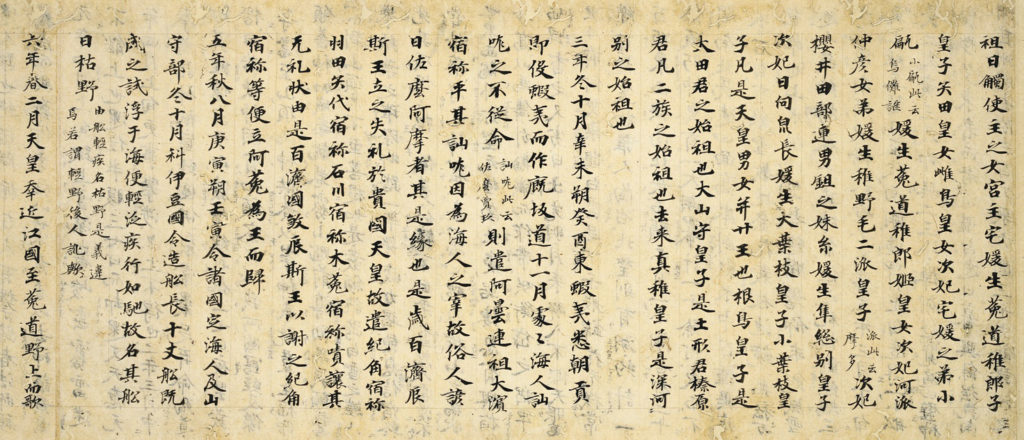 祖日觸使主之女宮主宅媛生菟道稚郎子
皇子矢田皇女雌鳥皇女次妃宅媛之弟小
甂小甂此云烏儺謎媛生菟道稚郎姫皇女次妃河派
仲彦女弟媛生稚野毛二派皇子派此云摩多次妃
櫻井田部連男鉏之妹糸媛生隼総別皇子
次妃日向泉長媛生大葉枝皇子小葉枝皇
子凡是天皇男女并廿王也根鳥皇子是
大田君之始祖也大山守皇子是土形君榛原
君凡二族之始祖也去来真稚皇子是深河
別之始祖也
三年冬十月辛未朔癸酉東蝦夷悉朝貢
即役蝦夷而作廐坂道十一月處〻海人訕
哤之不從命訕哤此云佐麼賣玖則遣阿曇連祖大濱
宿祢平其訕哤因為海人之宰故俗人諺
曰佐麼阿摩者其是縁也是歳百濟辰
斯王立之失礼於貴國天皇故遣紀角宿祢
羽田矢代宿祢石川宿祢木菟宿祢嘖讓其
无礼状由是百濟國敘辰斯王以謝之紀角
宿祢等便立阿菟為王而歸
五年秋八月庚寅朔壬寅令諸國定海人及山
守部冬十月科伊豆國令造舩長十丈舩既
成之試浮于海便輕泛疾行如馳故名其舩
曰枯野由舩輕疾名枯野是義違焉若謂輕野後人訛歟
六年春二月天皇幸近江國至菟道野上而歌